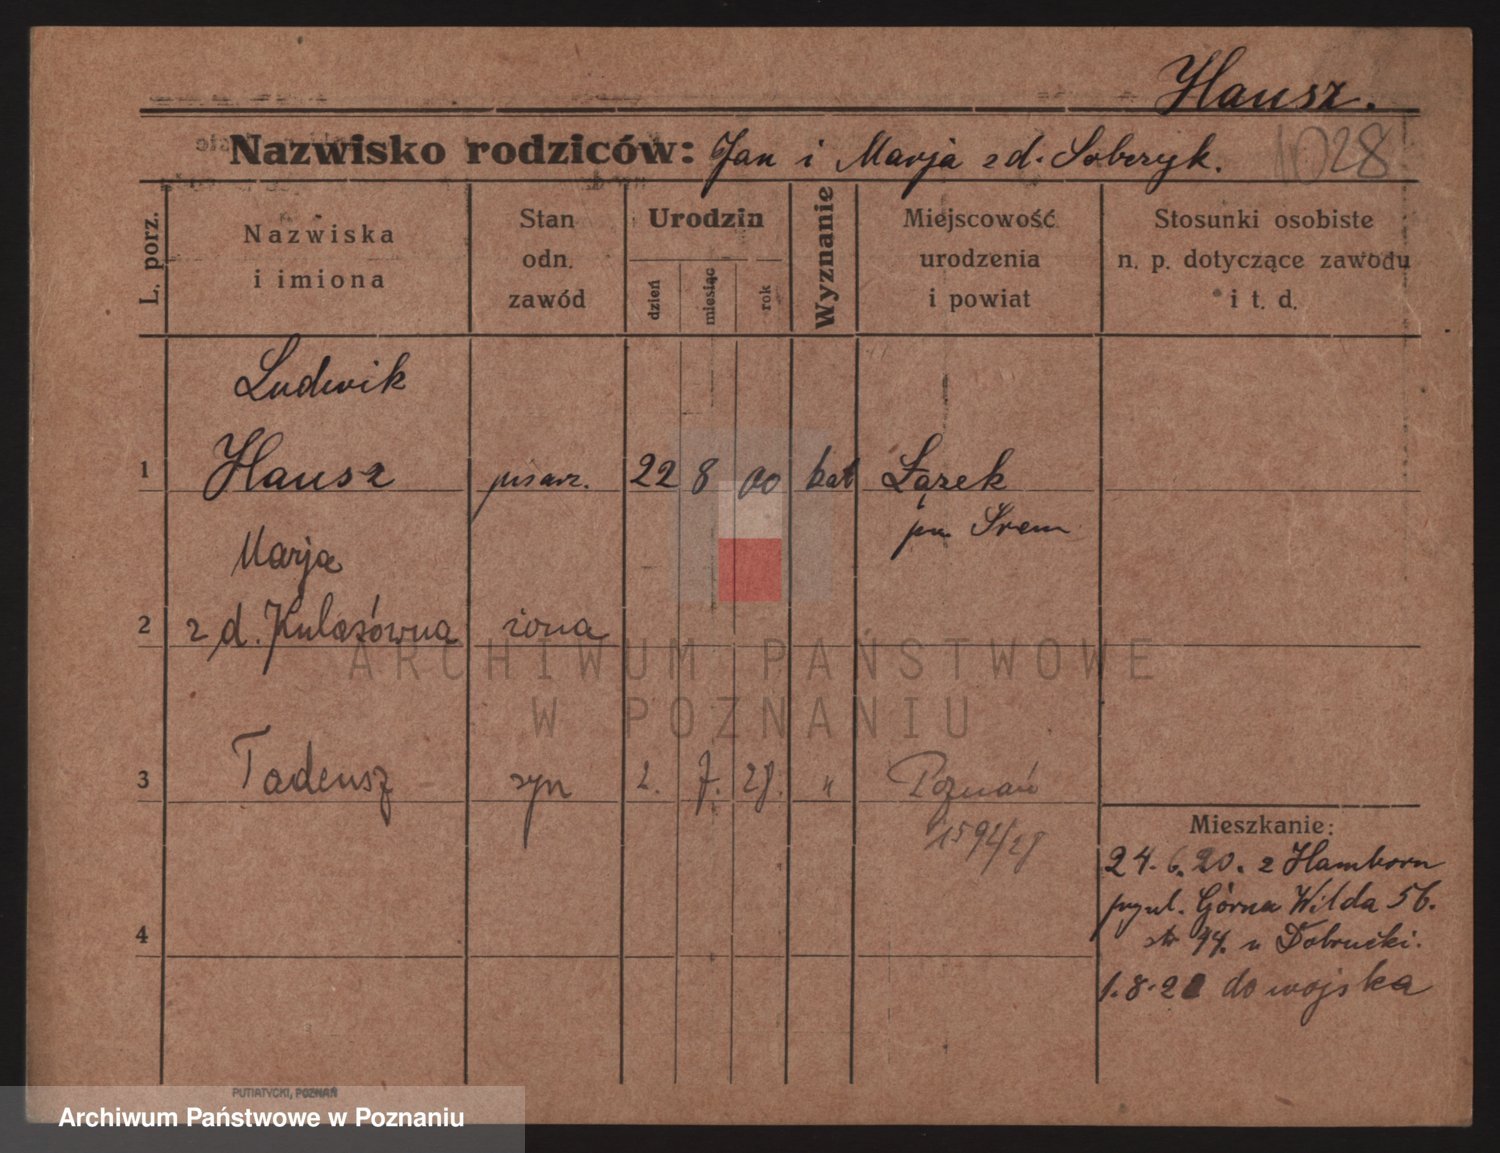 Hausz.
Nazwisko rodziców: Jan i Marja z d. Sobczyk.
1028
L. porz.
Nazwiska
i imiona
Stan
odn.
zawód
Urodzin
dzień
miesiąc
rok
Wyznanie
Miejscowość
urodzenia
i powiat
Stosunki osobiste
n. p. dotyczące zawodu
i t. d.
Ludwik
1 Hausz pisarz. 22 8 00 kat Łązek
pw Śrem
Marja
2 z d. Kulasówna żona
3 Tadeusz syn 2. 7. 28. " Poznań
1594/28
Mieszkanie:
24. 6. 20. z Hamborn
Górna Wilda 56.
94. u Dobrucki.
4
1.8.2 do wojska
PUTIATYCKI, POZNAŃ
ARCHIWUM PAŃSTWOWE
W POZNANIU
Archiwum Państwowe w Poznaniu